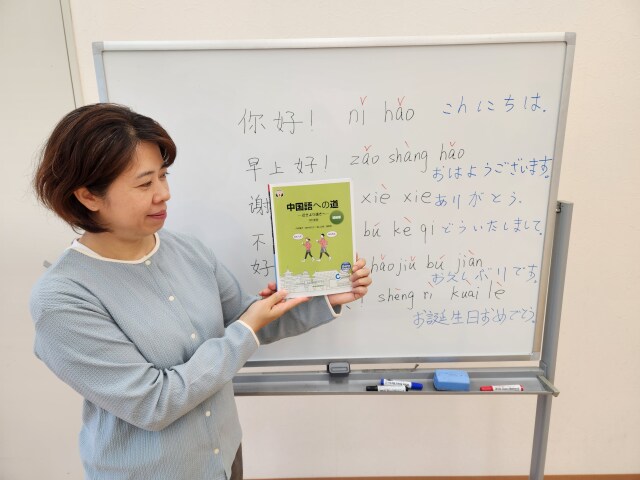 你好! nǐ hǎo こんにちは。
早上好! zǎo shàng hǎo おはようございます。
谢 xiè xie ありがとう。
不 bú kè qì どういたしまして。
好 hǎo jiǔ bú jiàn お久しぶりです。
shēng rì kuài lè お誕生日おめでとう。
中国語への道